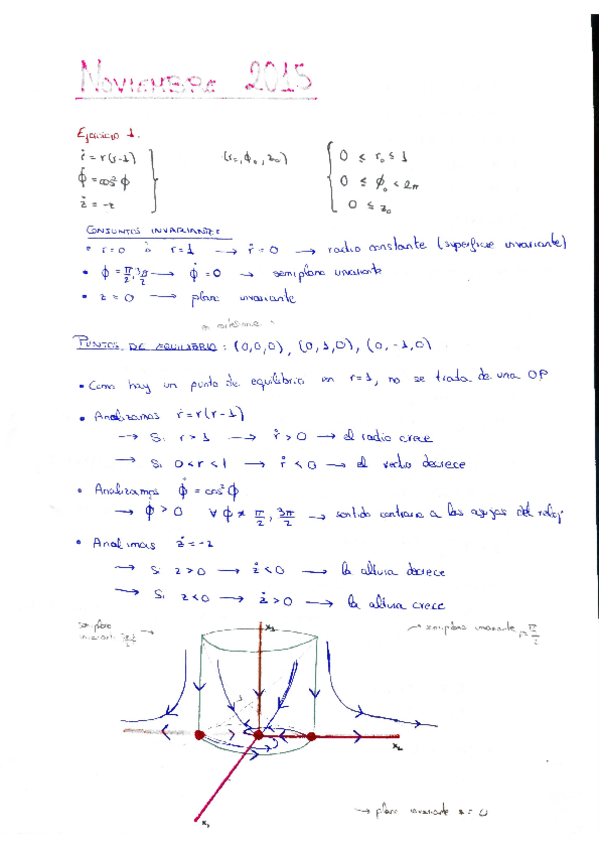 NOVIEMBRE 2015
Ejercicio 1.
ṙ = r(r-1)
ϕ̇ = cos²ϕ
ż = -z
(r₀, ϕ₀, z₀)
0 ≤ r₀ ≤ 1
0 ≤ ϕ₀ < 2π
0 ≤ z₀
CONJUNTOS INVARIANTES
• r=0 ó r=1 → ṙ=0 → radio constante (superficie invariante)
• ϕ = π/2, 3π/2 → ϕ̇=0 → semiplano invariante
• z=0 → plano invariante
PUNTOS DE EQUILIBRIO: (0,0,0), (0,1,0), (0,-1,0)
• Como hay un punto de equilibrio en r=1, no se trada de una OP
• Analizamos ṙ=r(r-1)
→ Si r>1 → ṙ>0 → el radio crece
→ Si 0<r<1 → ṙ<0 → el radio decrece
• Analizamos ϕ̇ = cos²ϕ
→ ϕ̇>0 ∀ϕ≠ π/2, 3π/2 → sentido contrario a las agujas del reloj
• Analimas ż=-z
→ Si z>0 → ż<0 → la altura decrece
→ Si z<0 → ż>0 → la altura crece
semiplano
invariante 3π/2 →
x₃
→ semiplano invariante π/2
x₂
x₁
→ plano invariante z=0